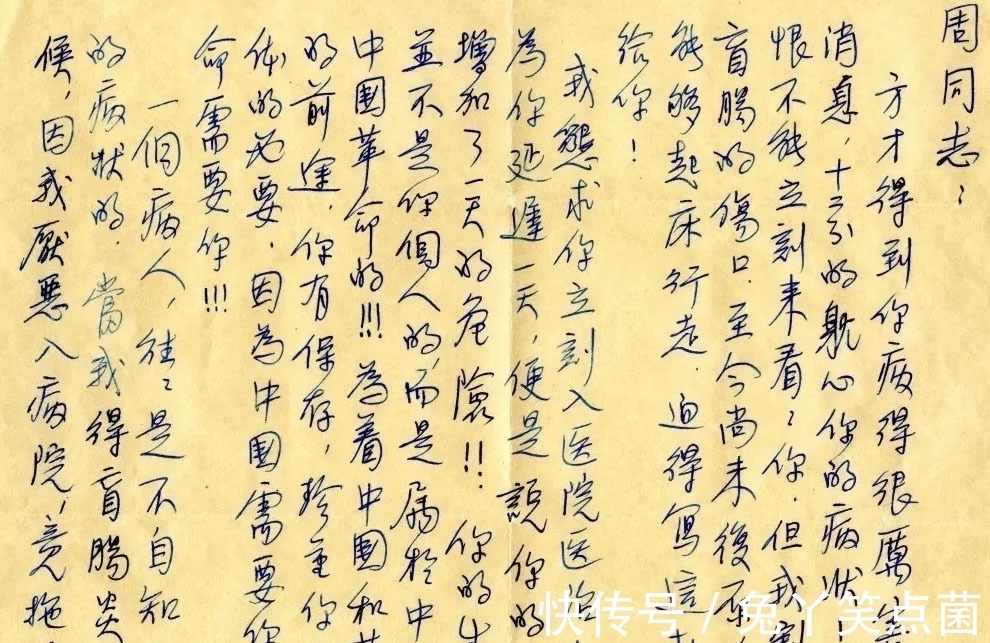 周同志：
方才得到你病得很厲
消息，十二分的躭心你的病狀
恨不能立刻来看々你．但我
盲腸的傷口．至今尚未復
能够起床行走．迫得寫這
给你！
我懇求你立刻入医院医治
為你延遲一天，便是說你的
增加了一天的危險!! 你的
並不是你個人的，而是属於中
中国革命的!!! 為着中国和
的前途．你有保存，珍重你
体的必要．因為中国需要你
命需要你!!!
一個病人，往々是不自知
的病狀的．當我得盲腸炎
候，因我厭惡入病院，竟拖
快传号 / 兔丫笑点菌